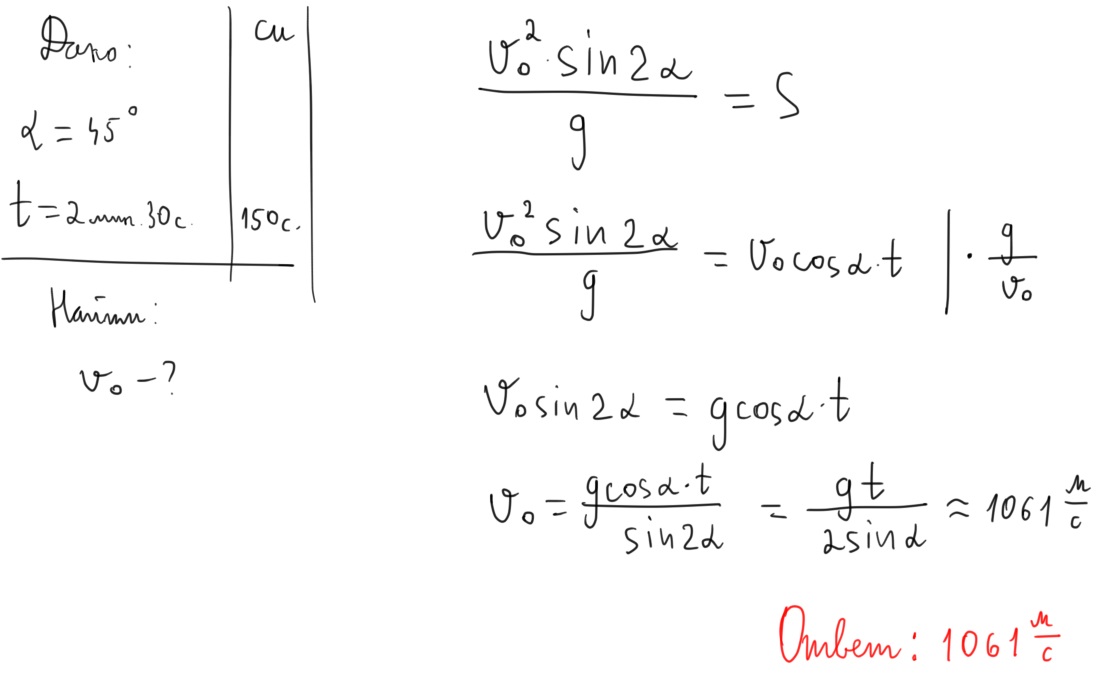 Дано:
СИ
α = 45°
t = 2 мин. 30 с.
150 с.
Найти:
v₀ – ?
v₀² · sin 2α / g = S
v₀² sin 2α / g = v₀ cos α · t | · g / v₀
v₀ sin 2α = g cos α · t
v₀ = g cos α · t / sin 2α = g t / 2 sin α ≈ 1061 м/с
Ответ: 1061 м/с